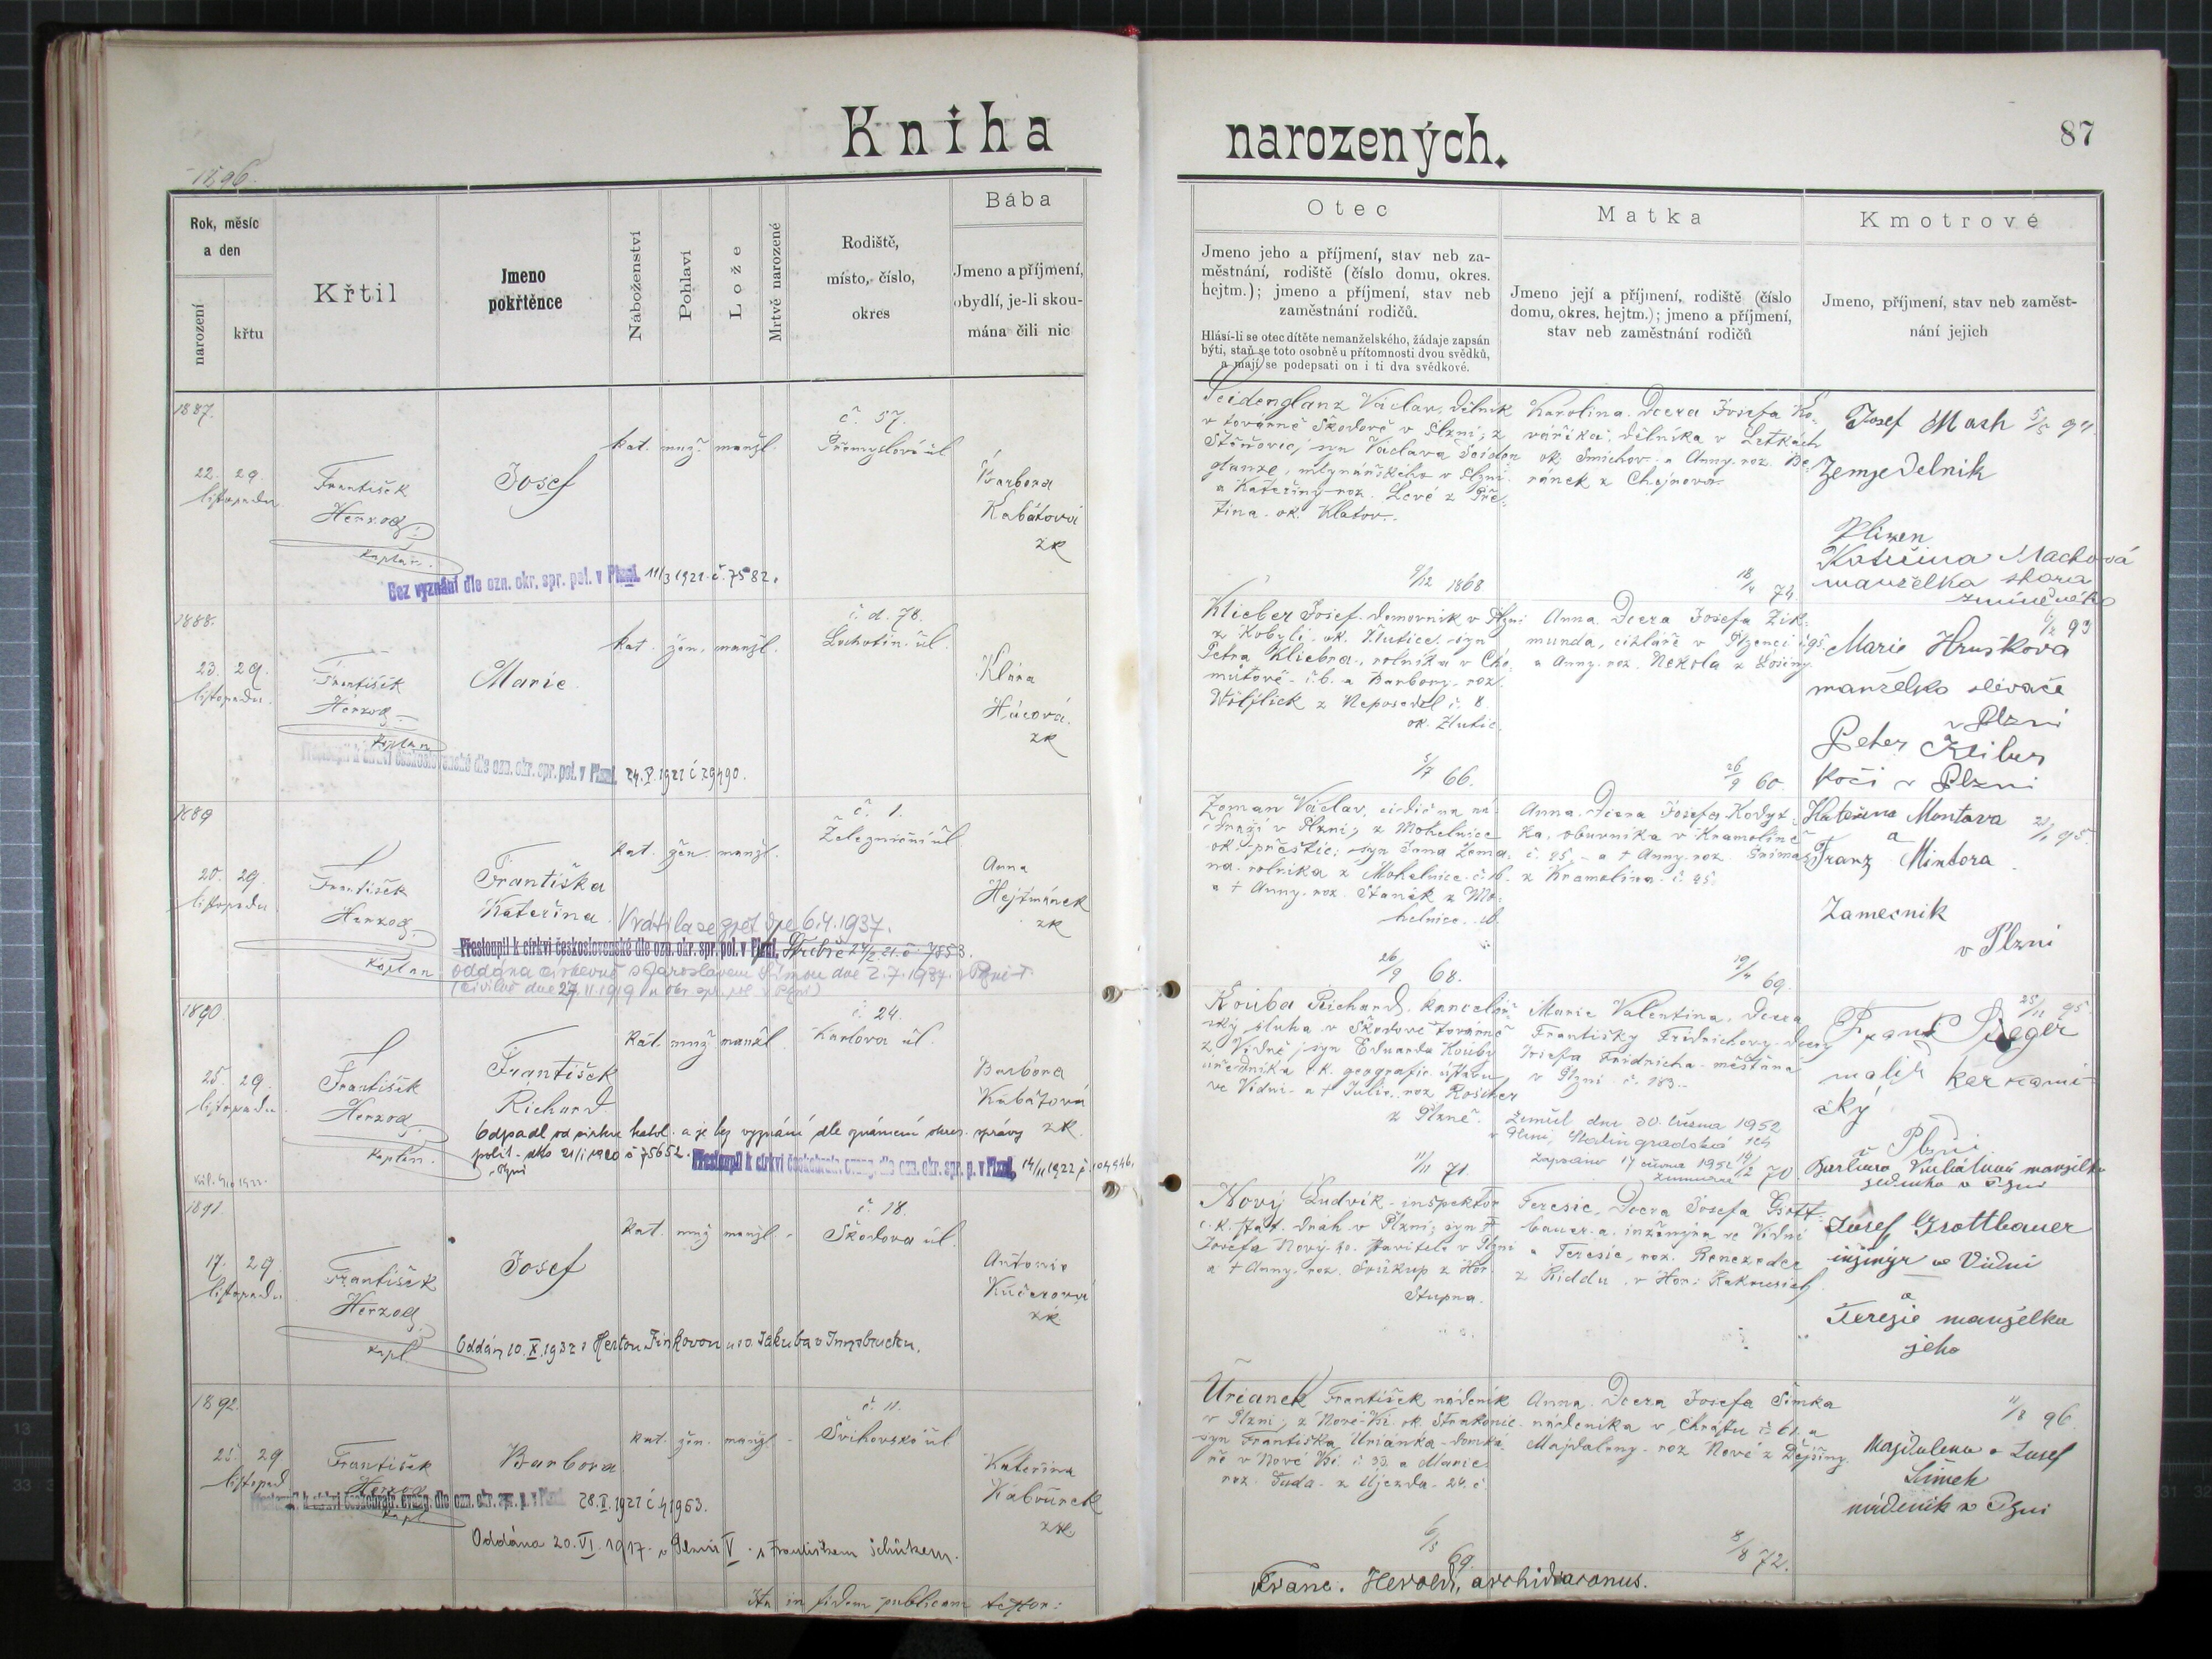 Kniha narozených.
87
1896.
Rok, měsíc
a den
narození
křtu
Křtil
Jmeno
pokřtěnce
Náboženství
Pohlaví
Lože
Mrtvě narozené
Rodiště,
místo, číslo,
okres
Bába
Jmeno a příjmení,
obydlí, je-li skou-
mána čili nic
Otec
Jmeno jeho a příjmení, stav neb za-
městnání, rodiště (číslo domu, okres.
hejtm.); jmeno a příjmení, stav neb
zaměstnání rodičů.
Hlásí-li se otec dítěte nemanželského, žádaje zapsán
býti, staň se toto osobně u přítomnosti dvou svědků,
a mají se podepsati on i ti dva svědkové.
Matka
Jmeno její a příjmení, rodiště (číslo
domu, okres. hejtm.); jmeno a příjmení,
stav neb zaměstnání rodičů
Kmotrové
Jmeno, příjmení, stav neb zaměst-
nání jejich
1887.
22. 29.
listopadu
František
Herzog
kaplan.
Josef
kat. muž. manžl.
č. 57.
Přemyslova ul.
Barbora
Kabátová
zk
Bez vyznání dle ozn. okr. spr. pol. v Plzni. 11/3 1921 č. 7582.
Seidenglanz Václav, dělník
v továrně Škodově v Plzni, z
syn Václava Seiden
glanze, mlynářského v Plzni
a Kateřiny roz. Levé z
ok. Klatov.
9/12 1868.
Karolina. Dcera Josefa Ko-
váříka, dělníka v Letkách
ok. Smíchov a Anny. roz. Be-
ránek z Chejnova.
18/4 74.
Josef Mash 5/5 94
Zemjedelnik
Plizen
Kateřina Machová
manželka shora
zmíněného
1888.
23. 29.
listopadu.
František
Herzog
kaplan
Marie
kat. žen. manžl.
č. d. 78.
Lochotín. ul.
Klára
Hácová.
zk
Přestoupil k církvi československé dle ozn. okr. spr. pol. v Plzni. 24.V.1921 č 29490.
Klieber Josef. domovník v Plzni
z Kobyli. ok. Žlutice. syn
Petra Kliebra, rolníka v Cho-
mútově č. 6. a Barbory. roz.
z Neposedel č. 8.
ok. Žlutic.
5/7 66.
Anna. Dcera Josefa Zik-
munda, cihláře v Plzenci
a Anny. roz. Nekola z
26/9 60.
Marie Hruškova 93
manželka slévače
v Plzni
Peter Kliber
Kočí v Plzni
1889
20. 29.
listopadu
František
Herzog
kaplan
Františka
Kateřina.
kat. žen. manžl.
č. 1.
Železniční ul
Anna
Hejtmánek
zk
Vrátila se zpět dne 6.4.1937.
Přestoupil k církvi československé dle ozn. okr. spr. pol. v Plzni.
oddána církevně s Jaroslavem Šímou dne 2.7.1937.
(civilně dne 27.11.1919 u okr. spr. pol. v Plzni)
Zoman Václav,
v Plzni, z Mohelnice
ok. přeštic; syn Jana Zoma-
na. rolníka z Mohelnice. č. 16.
a † Anny. roz. Staněk z Mo-
helnice.
26/9 68.
Anna. Dcera Josefa
ka, obuvníka v Kramolíně
č. 95. a † Anny. roz.
z Kramolína č. 45.
19/4 69.
Kateřina Montova 95
a
Franz Mintora
Zamecnik
v Plzni
1890
25. 29.
listopadu.
František
Herzog
kaplan.
František
Richard
kat. muž manžl.
č. 24.
Karlova ul.
Barbora
Kabátová
zk.
Odpadl od církve katol. a je bez vyznání dle oznámení okres. správy
polit. 21/I 1920 č 75652. Přestoupil k církvi českobratr. evang. dle ozn. okr. spr. p. v Plzni, 14/11 1922
Kouba Richard. kancelář-
ský sluha v Škodově továrně
z Vídně, syn Eduarda Kouby
úředníka c.k. geografic. ústavu
ve Vídni a † Julie. roz. Roscher
z Plzně.
11/11 71.
Marie Valentina, dcera
Františky Fridrichovy dcery
Josefa Fridricha měšťana
v Plzni č. 183.
Zemřel dne 30. 1952
v Plzni, Stalingradská 124
Zapsáno 17 června 1952
70.
Franc Seger 25/11 95.
malíř keramic-
ký
v Plzni.
Barbora Kabátová manželka
v Plzni
1891.
17. 29
listopadu
František
Herzog
kapl.
Josef
kat. muž manžl.
č. 18.
Škodova ul.
Antonie
Kučerová
zk
Oddán 10.X.1932 s Hertou Finkovou u sv. Jakuba v Innsbrucku.
Nový Ludvík - inšpektor
c. k. stát. drah v Plzni, syn †
Josefa Nový. stavitele v Plzni
a † Anny. roz. Soukup z Hor.
Stupna.
Terezie, Dcera Josefa Grott-
bauera, inžinýra ve Vídni
a Terezie, roz.
z Riddu v Hor. Rakousích
Josef Grottbauer
inžinýr ve Vídni
a
Terezie manželka
jeho
1892.
25. 29
listopad
František
Herzog
kapl.
Barbora
kat. žen. manžl.
č. 11.
Švihovská ul
Kateřina
Kaboúrek
zk
Přestoupil k církvi českobratr. evang. dle ozn. okr. spr. p. v Plzni 28.I.1921 č 41963.
Oddána 20.VI.1917. v Plzni V. s Františkem
Úrianek František nádeník
v Plzni; z Nové-Vsi ok. Stankonic.
syn Františka Uriánka - domká-
ře v Nové Vsi č 33. a Marie.
roz. Duda. z Újezda. 24. č.
6/3 69.
Anna. Dcera Josefa Šimka
nádeníka v Chrástu č 61. a
Majdaleny. roz Nové z Dejšiny.
8/8 72.
11/8 96.
Majdalena a Josef
Šimek
nádeník v Plzni
Ita in fidem publicam testor: Franc. Herold, archidiaconus.